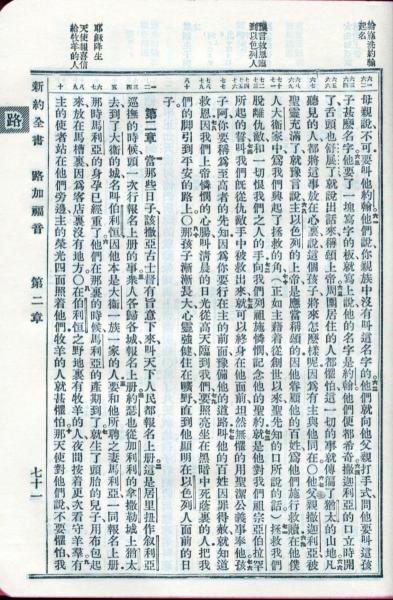 給施洗約翰
起名
豫言救恩臨
到以色列人
耶穌降生
天使報喜信
給牧羊的人
母親說不可要叫他約翰他們說你親族中沒有叫這名字的他們就向他父親打手式問他要叫這孩
子甚麼名字他要了一塊寫字的板就寫上說他的名字是約翰他們便都希奇撒迦利亞的口立時開
了舌頭也舒展了就說出話來稱頌上帝周圍居住的人都懼怕這一切的事就傳徧了猶太的山地凡
聽見的人都將這事放在心裏說這個孩子將來怎麼樣呢因爲有主與他同在○他父親撒迦利亞被
聖靈充滿了就豫言說主以色列的上帝是應當稱頌的因他眷顧他的百姓爲他們施行救贖在他僕
人大衞家中爲我們興起了拯救的角（正如主藉着從創世以來聖先知的口所說的話）拯救我們
脫離仇敵和一切恨我們之人的手向我們列祖施憐憫記念他的聖約就是他對我們祖宗亞伯拉罕
所起的誓叫我們旣從仇敵手中被救出來就可以終身在他面前坦然無懼的用聖潔公義事奉他孩
子阿你要稱爲至高者的先知因爲你要行在主的前面豫備他的道路叫他的百姓因罪得赦就知道
救恩因我們上帝憐憫的心腸叫清晨的日光從高天臨到我們要照亮坐在黑暗中死蔭裏的人把我
們的腳引到平安的路上○那孩子漸漸長大心靈強健住在曠野直到他顯明在以色列人面前的日
子
第二章 當那些日子該撒亞古士督有旨意下來叫天下人民都報名上册這是居里扭作叙利亞
巡撫的時候頭一次行報名上册的事衆人各歸各城報名上册約瑟也從加利利的拿撒勒城上猶太
去到了大衞的城名叫伯利恒因他本是大衞一族一家的人要和他所聘之妻馬利亞一同報名上册
那時馬利亞的身孕已經重了他們在那裏的時候馬利亞的產期到了就生了頭胎的兒子用布包起
來放在馬槽裏因爲客店裏沒有地方○在伯利恒之野地裏有牧羊的人夜間按着更次看守羊羣有
主的使者站在他們旁邊主的榮光四面照着他們牧羊的人就甚懼怕那天使對他們說不要懼怕我
新約全書 路加福音 第二章 七十一
路